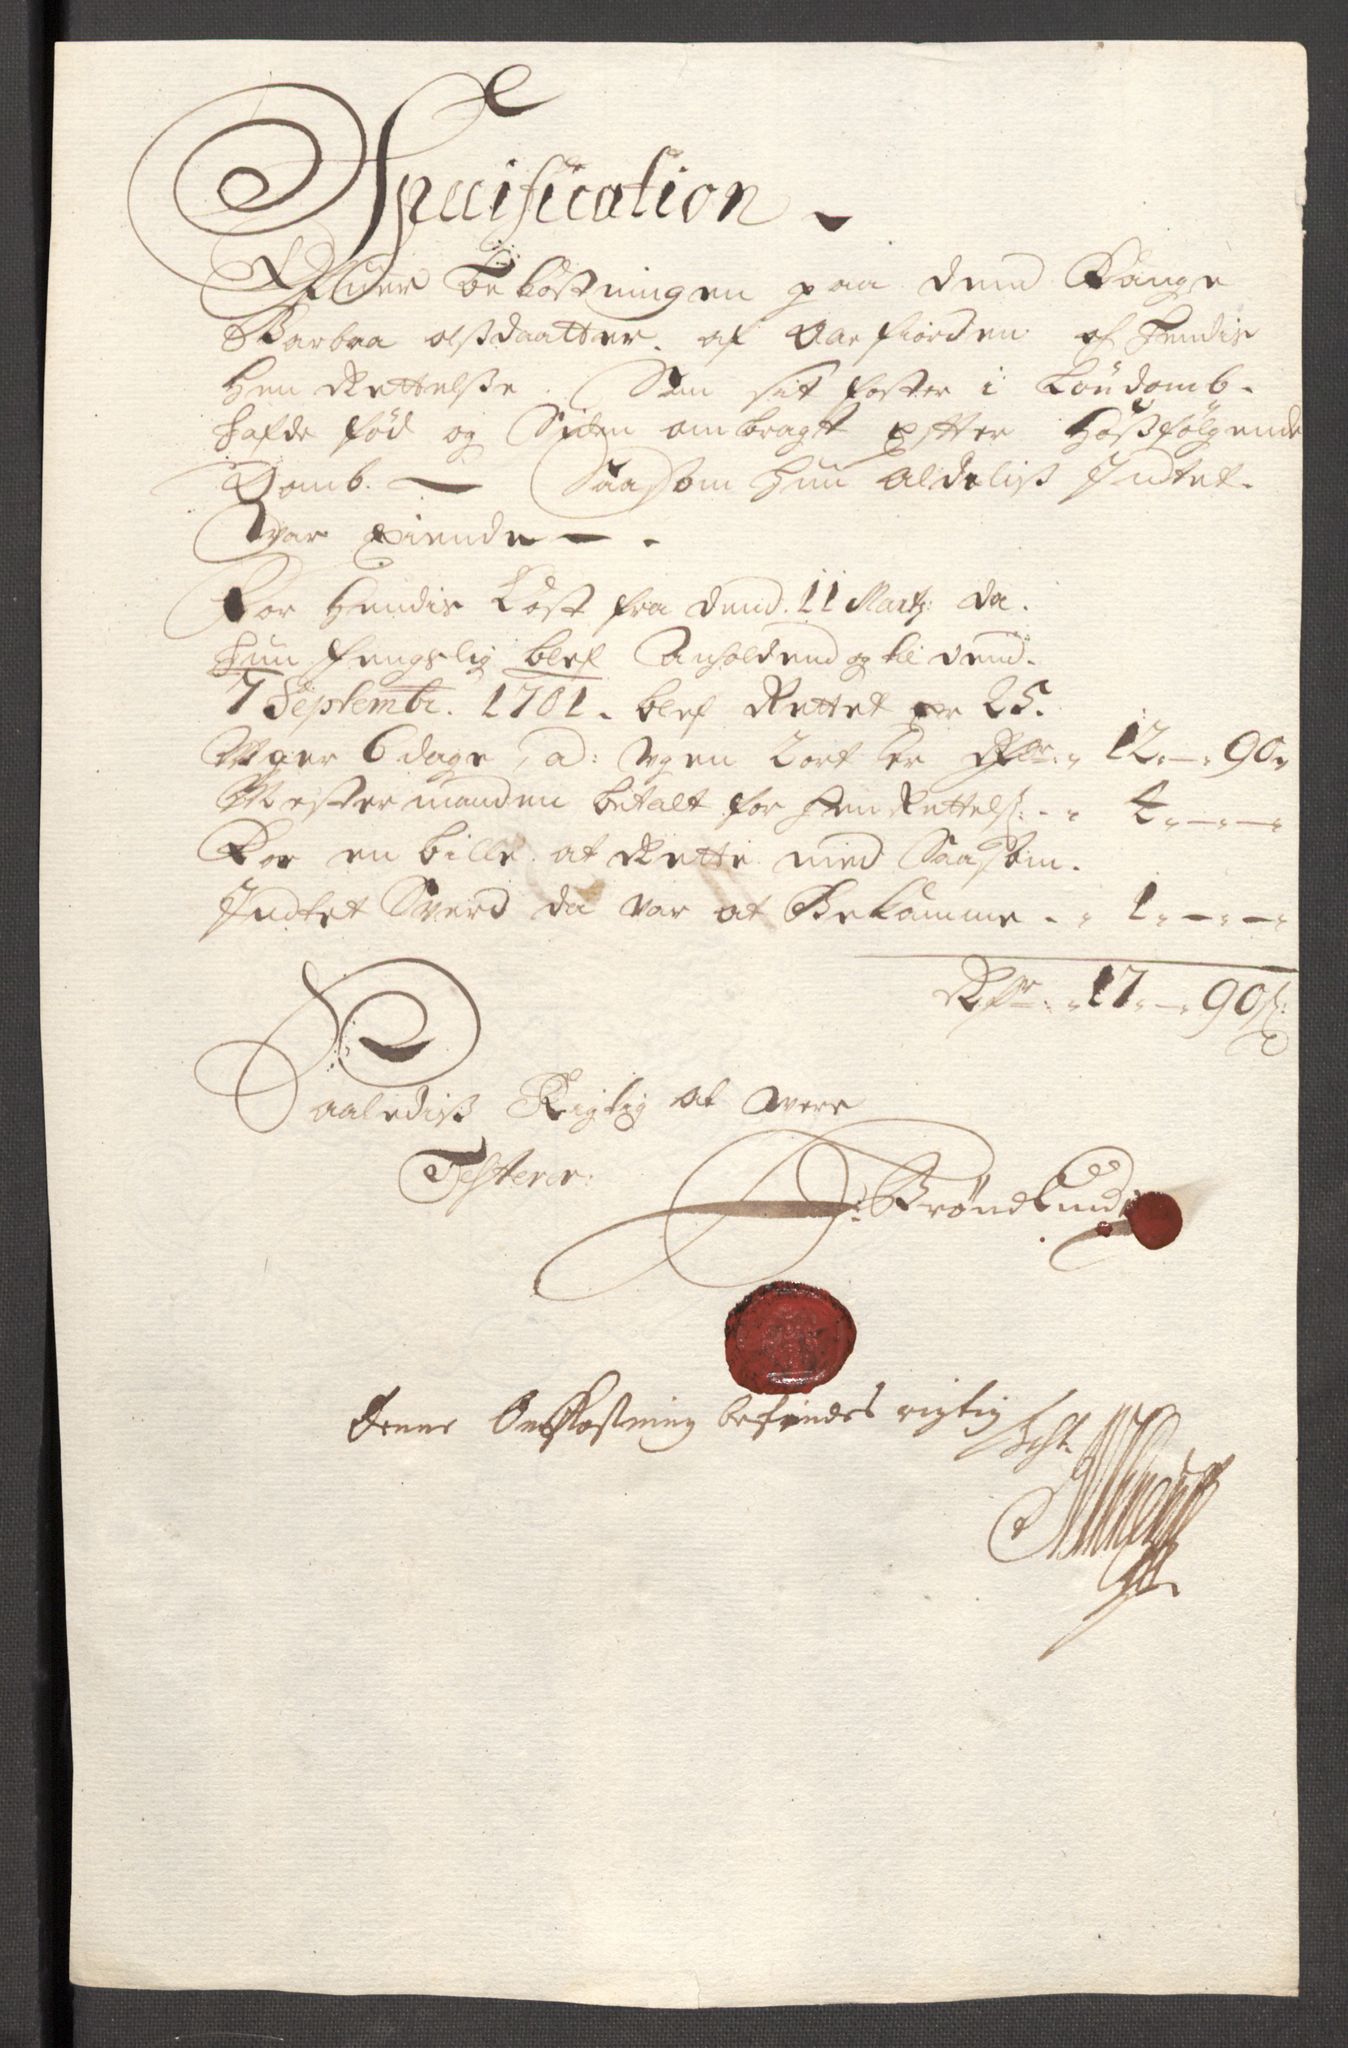 Specification
Ofuer Bekostningen paa dend Fange
Barbra olsdaatter. af Varfiorden of Hendis
Hen Rettelsse Som sit foster i Løndomb.
hafde fød og Siden ombragt Efter Hossfølgende
Domb. — Saasom hun aldeliss Indtet.
var Eiende — .
For Hendis Kost fra dend. 11 Marty: da.
hun fengslig blef Anholdend og til dend.
7 Septembr. 1701. blef Rettet er 25.
Uger 6 dage, a: ugen 2 ort er Rdr. 12. — 90.
Mestermanden betalt for HenRettels: . 4. — . — .
For en bille at Rette med Saasom.
Indtet Sverd da var at Bekomme . 1. — . — .
Rdr: 17. — 90 s:
Saalediss Rigtig at were
Testerer:
Brøndlund
Denne Bekostning befindes rigtig
test.